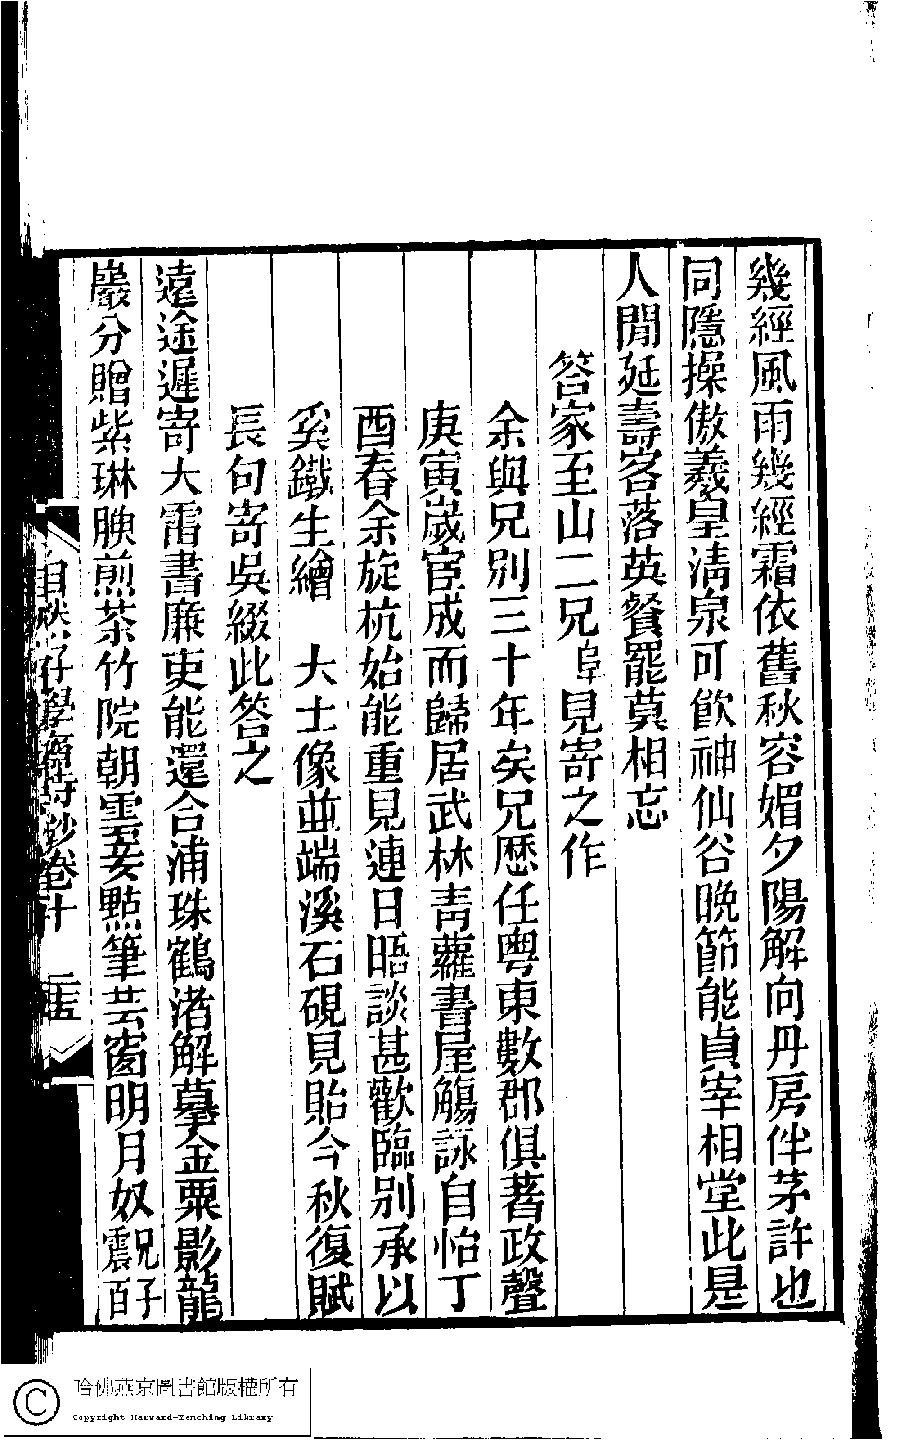 幾經風雨幾經霜依舊秋容媚夕陽解向丹房伴茅許也
同隱操傲羲皇淸泉可飮神仙谷晩節能貞宰相堂此是
人閒延壽客落英餐罷莫相忘
答家至山二兄阜見寄之作
余與兄別三十年矣兄歷任粤東數郡俱著政聲
庚寅嵗宦成而歸居武林靑蘿書屋觴詠自怡丁
酉春余旋杭始能重見連日晤談甚歡臨別承以
奚鐵生繪　大士像並端溪石硯見貽今秋復賦
長句寄吳綴此答之
遠途遲寄大雷書廉吏能還合浦珠鶴渚解摹金粟影龍
巖分贈紫琳腴煎茶竹院朝雲妾點筆芸窗明月奴兄子
震百
自然好學齋詩鈔卷十
哈佛燕京圖書館版權所有
Copyright Harvard-Yenching Library